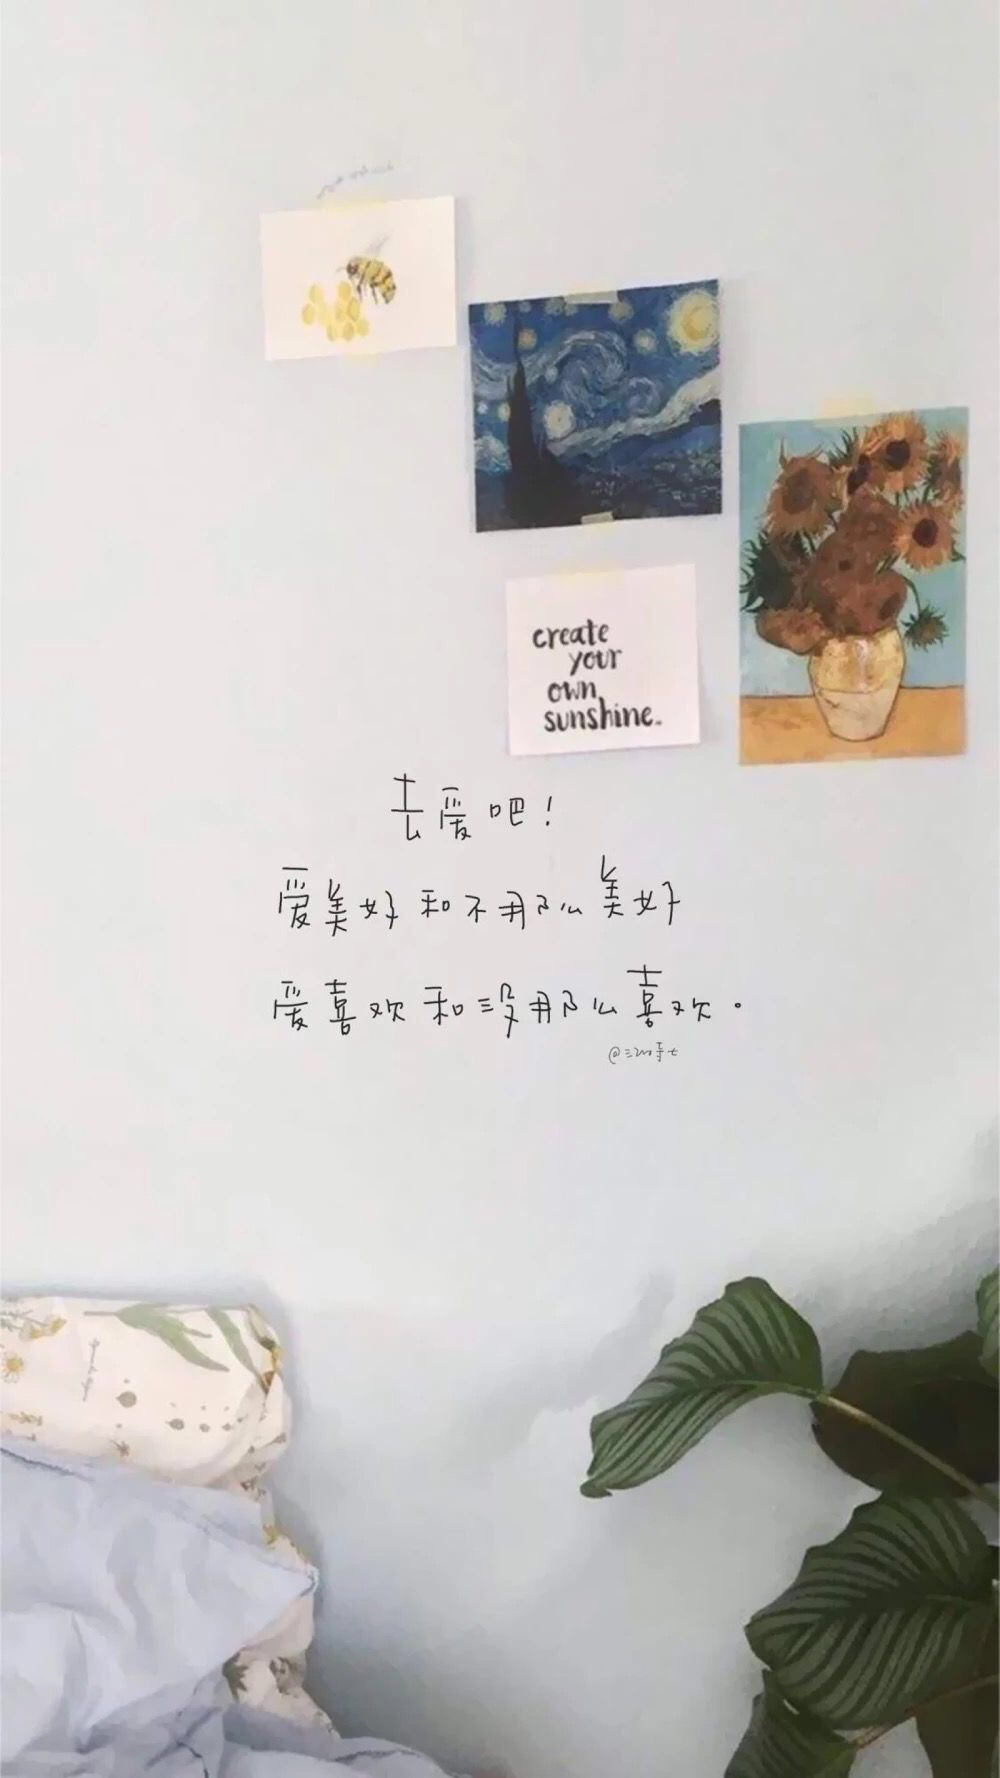 create
your
own
sunshine.
去爱吧！
爱美好和不那么美好
爱喜欢和没那么喜欢。